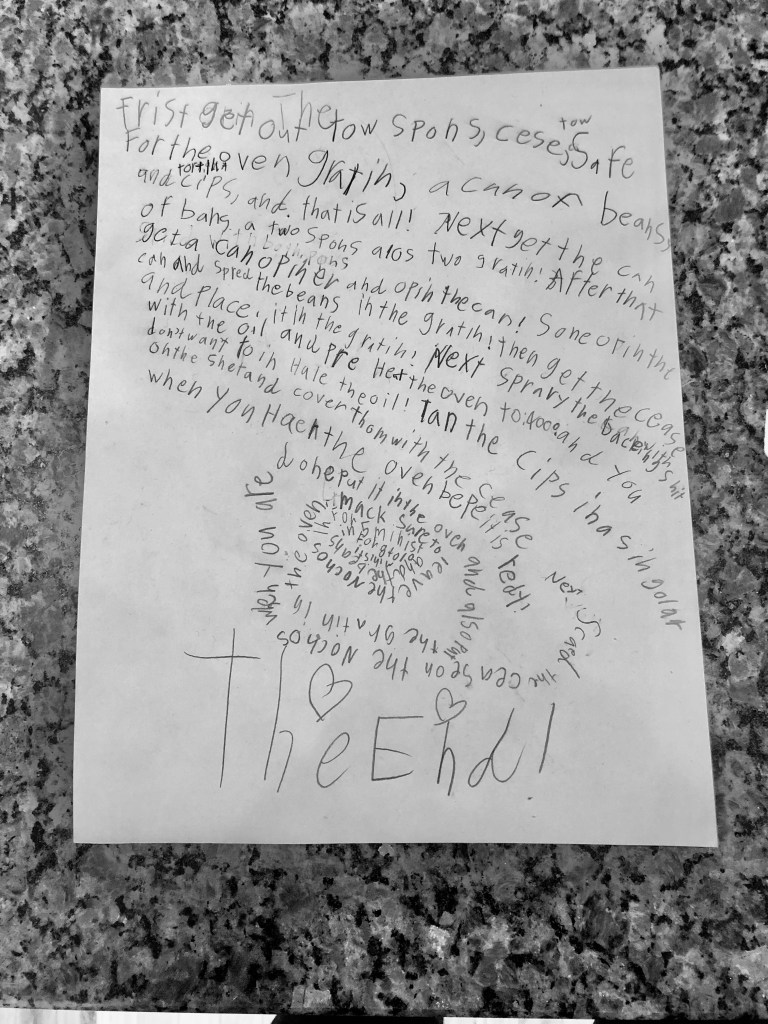 Frist get out The tow spons, cese, tow Safe
For the oven gratin, a can of beans,
and tortilla cips, and. that is all! Next get the can
of bans, a two spons alos two gratin! After that
get a can opiner and opin the can! Sone opin the
can and spred the beans in the gratin! then get the cease
and Place, it in the gratin! Next sprary the backing shit
with the oil and pre Heat the oven to:400°. and You
don't want to in Hale the oil! Tan the cips in a singolar
on the shet and cover thom with the cease
when You Haen the oven bepe it is redt!
Next spred the cease on the Nochos
when You are done put it in the oven and also put the gratin in
the oven
mack sure to leave
the Nochos in
for 5 minist
and
the beans
The End!